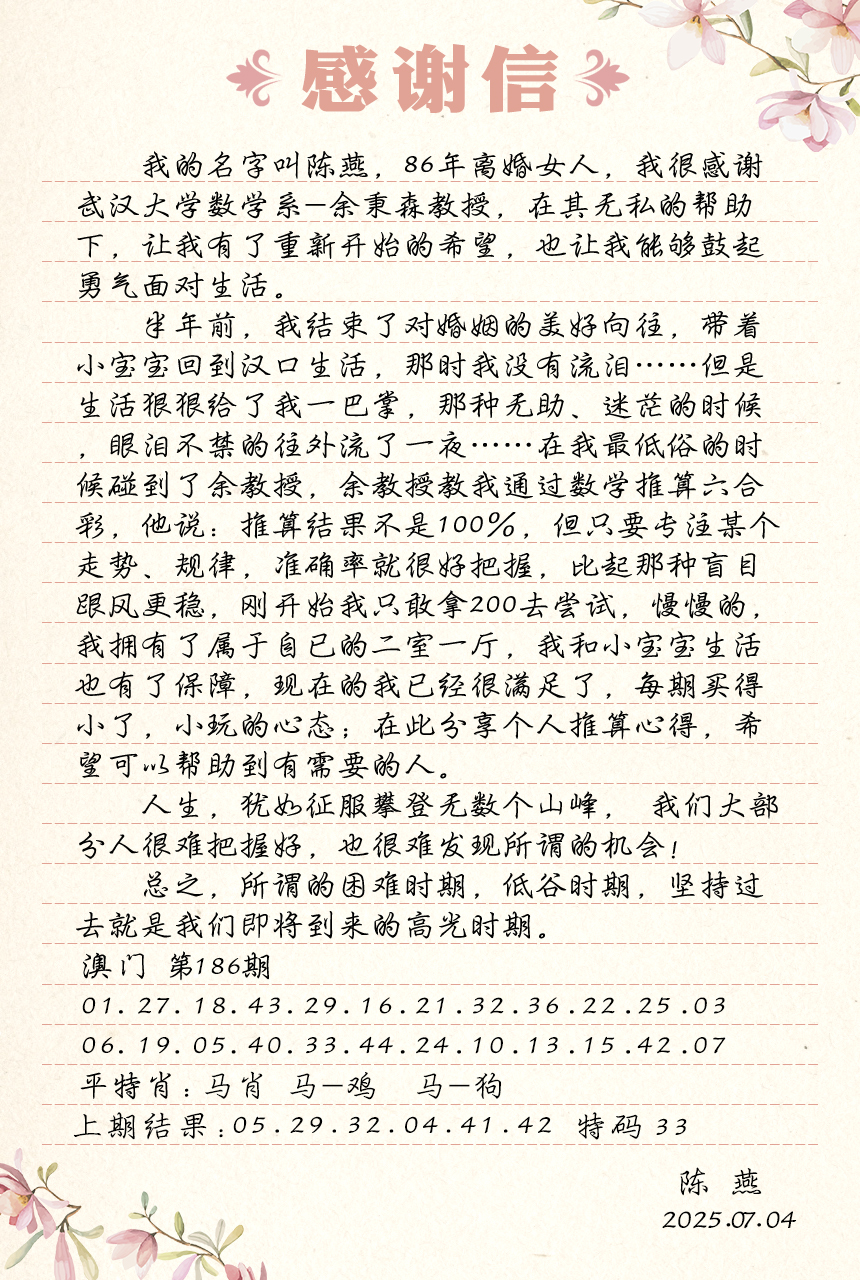 感谢信
我的名字叫陈燕，86年离婚女人，我很感谢
武汉大学数学系—余秉森教授，在其无私的帮助
下，让我有了重新开始的希望，也让我能够鼓起
勇气面对生活。
半年前，我结束了对婚姻的美好向往，带着
小宝宝回到汉口生活，那时我没有流泪……但是
生活狠狠给了我一巴掌，那种无助、迷茫的时候
，眼泪不禁的往外流了一夜……在我最低俗的时
候碰到了余教授，余教授教我通过数学推算六合
彩，他说：推算结果不是100%，但只要专注某个
走势、规律，准确率就很好把握，比起那种盲目
跟风更稳，刚开始我只敢拿200去尝试，慢慢的，
我拥有了属于自已的二室一厅，我和小宝宝生活
也有了保障，现在的我已经很满足了，每期买得
小了，小玩的心态；在此分享个人推算心得，希
望可以帮助到有需要的人。
人生，犹如征服攀登无数个山峰， 我们大部
分人很难把握好，也很难发现所谓的机会！
总之，所谓的困难时期，低谷时期，坚持过
去就是我们即将到来的高光时期。
澳门 第186期
01.27.18.43.29.16.21.32.36.22.25.03
06.19.05.40.33.44.24.10.13.15.42.07
平特肖：马肖 马—鸡 马—狗
上期结果：05.29.32.04.41.42 特码 33
陈 燕
2025.07.04